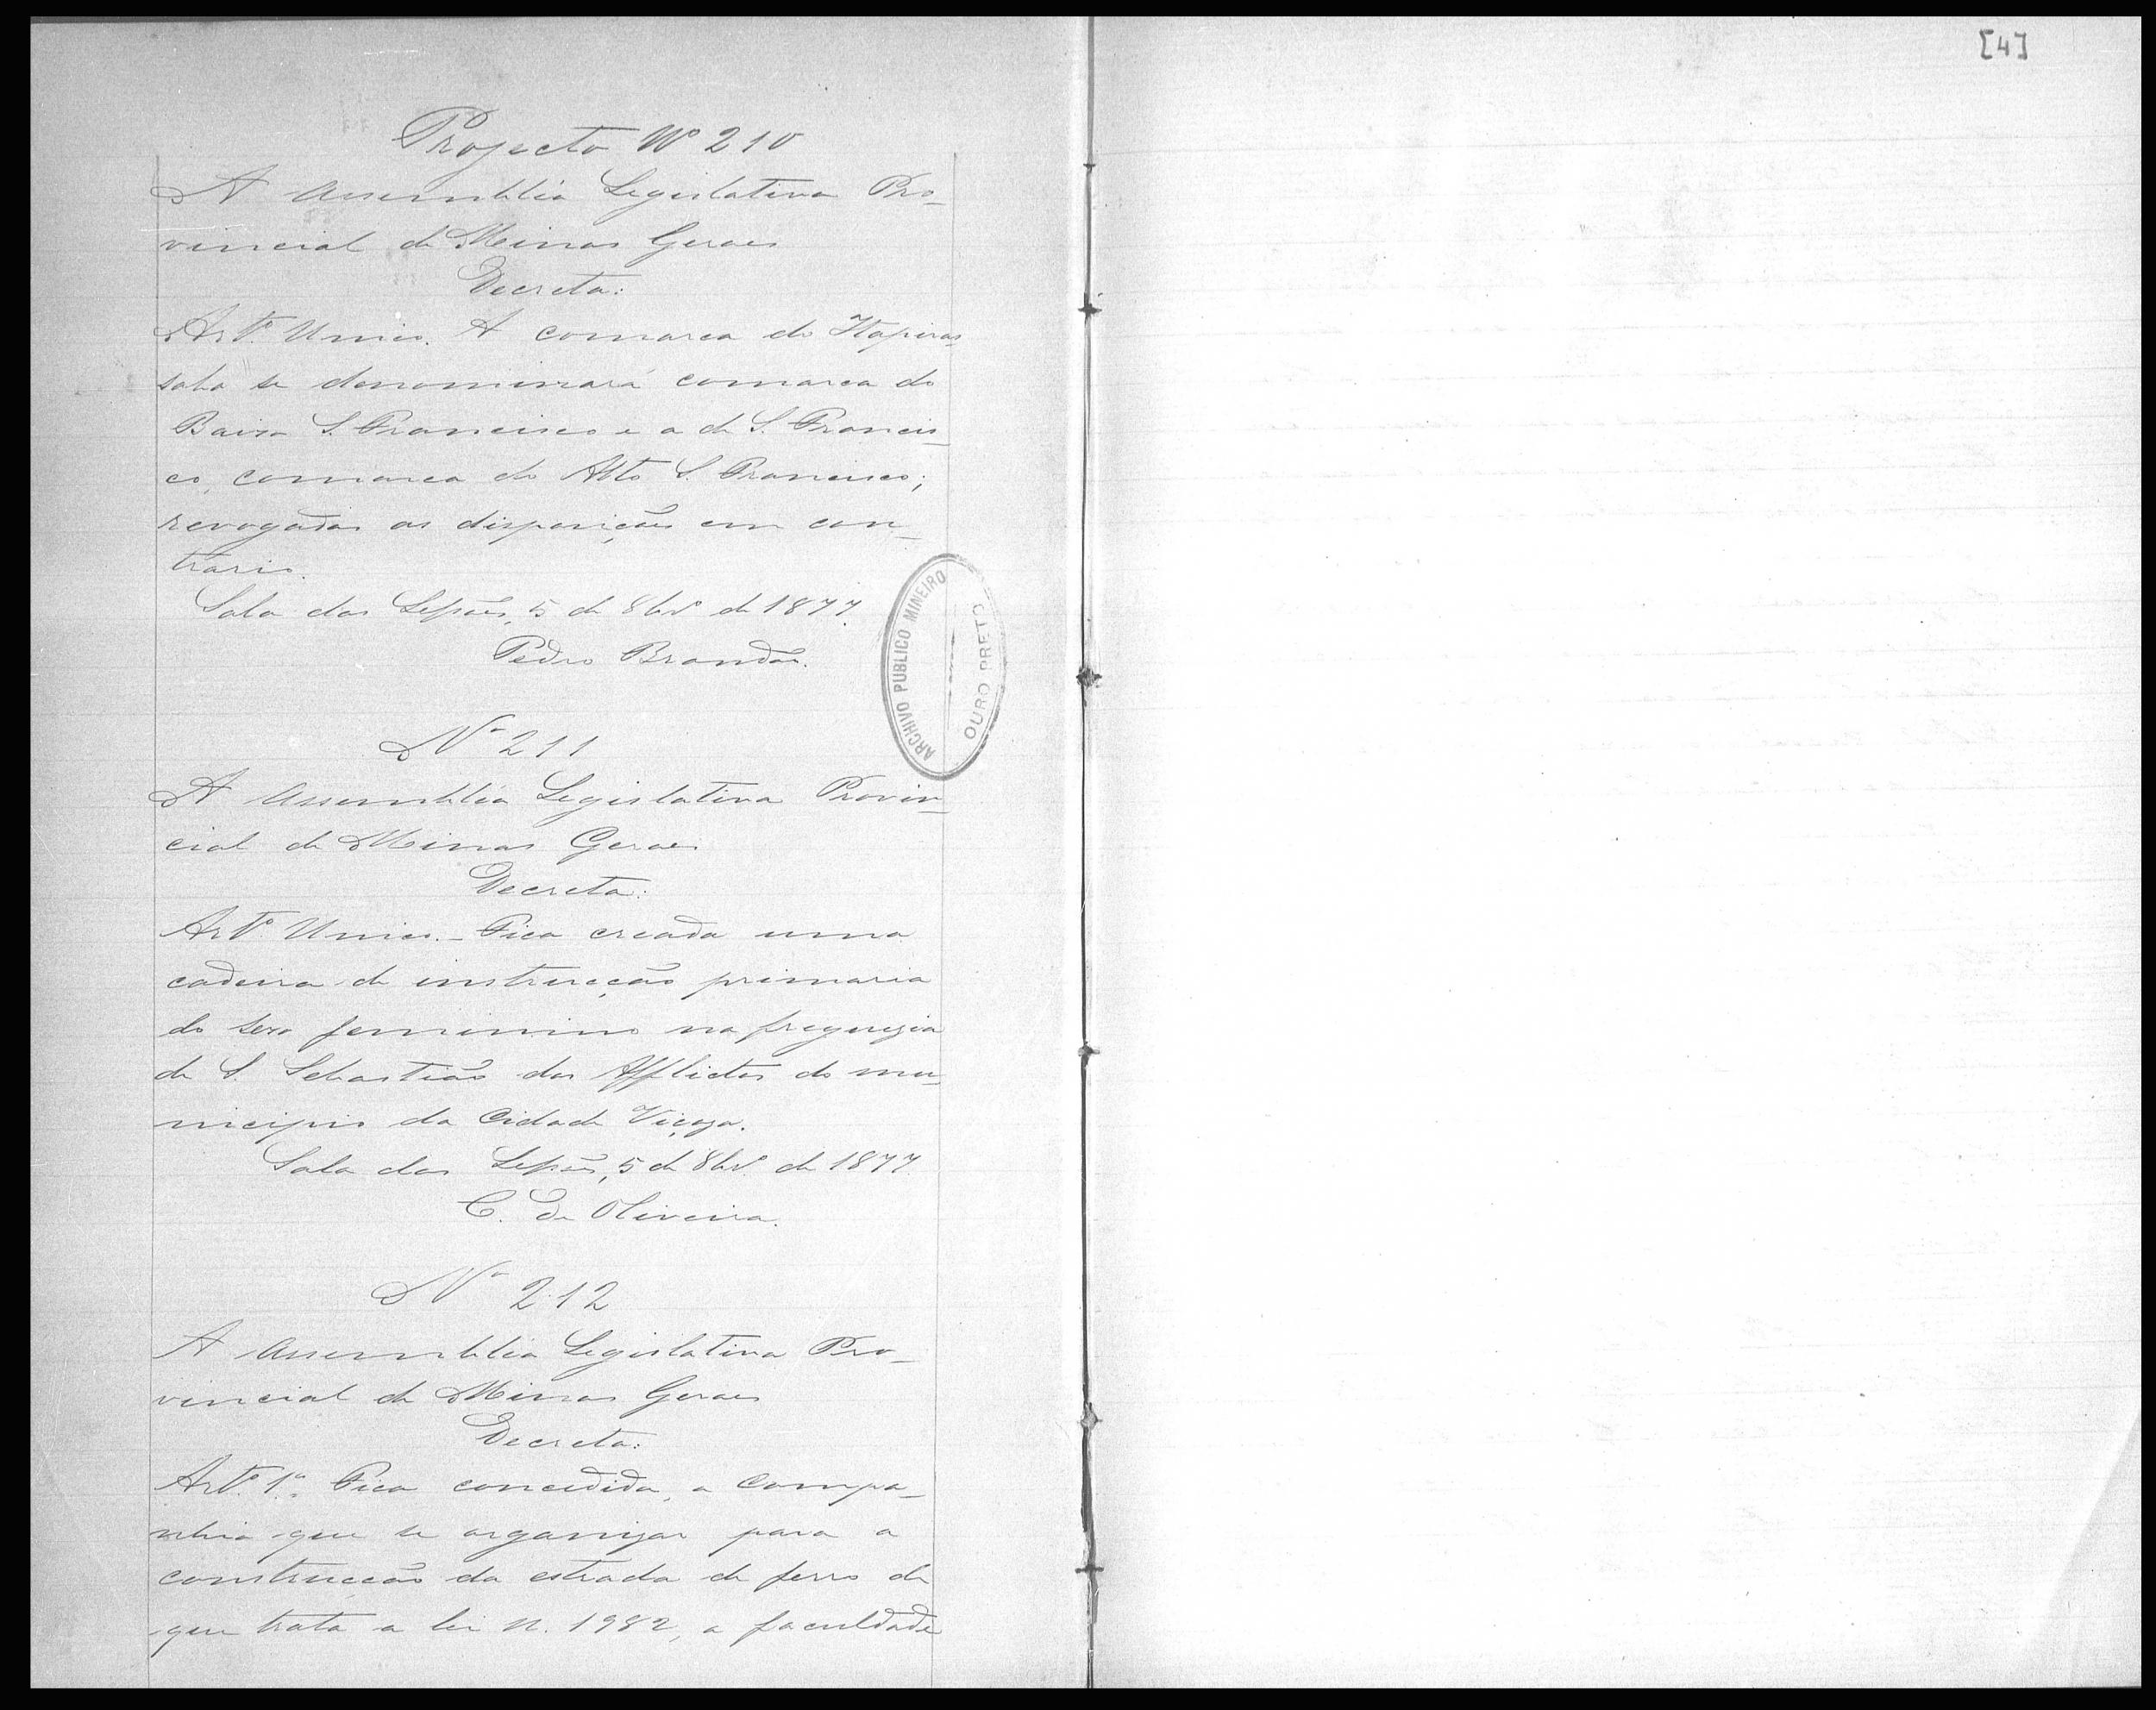 [4]
Projecto Nº 210
A Assembléa Legislativa Pro-
vincial de Minas Geraes
Decreta:
Artº. Unico. A comarca do Itapiras-
saba se denominará comarca do
Baixo S. Francisco e a de S. Francis-
co, comarca do Alto S. Francisco;
revogadas as disposições em con-
trario.
Sala das Sessões, 5 de 8brº de 1877.
Pedro Brandão.
ARCHIVO PUBLICO MINEIRO
OURO PRETO
Nº 211
A Assembléa Legislativa Provin-
cial de Minas Geraes
Decreta:
Artº Unico. - Fica creada uma
cadeira de instrucção primaria
do sexo feminino na freguezia
de S. Sebastião dos Afflictos do mu-
nicipio da Cidade Viçoza.
Sala das Sessões, 5 de 8brº de 1877.
C. de Oliveira.
Nº 212
A Assembléa Legislativa Pro-
vincial de Minas Geraes
Decreta:
Artº. 1º. Fica concedida, a compa-
nhia que se organizar para a
construcção da estrada de ferro de
que trata a lei n. 1982, a faculdade